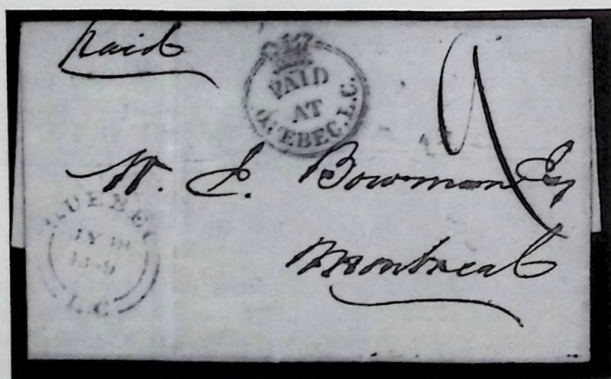 Paid
PAID
AT
QUEBEC. L.C.
9
W. E. Bowman Esq
Montreal
QUEBEC
L.C